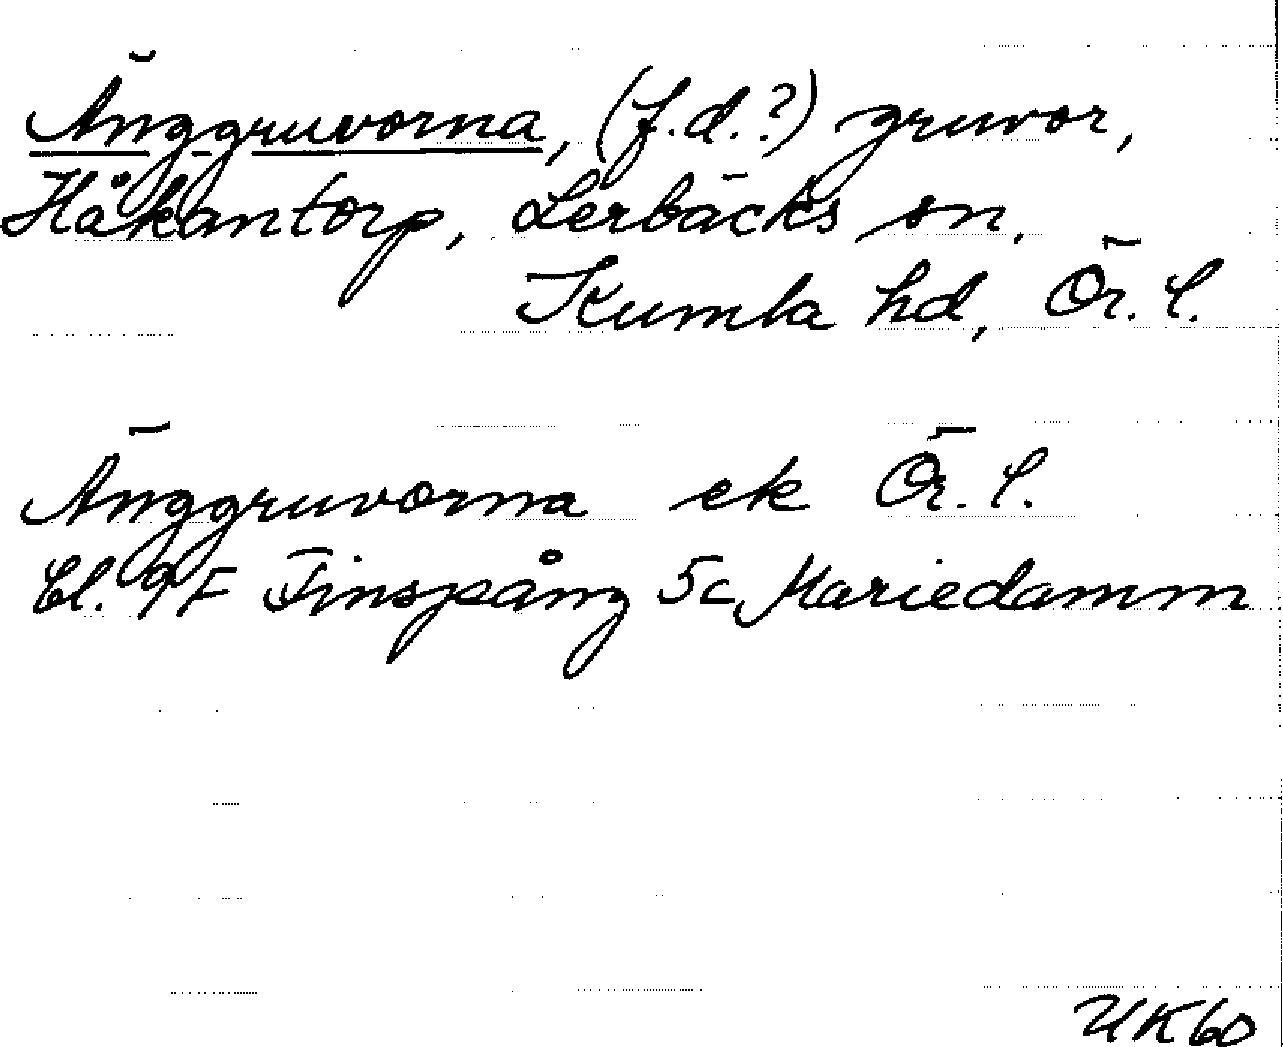 Änggruvorna, (f.d.?) gruvor,
Håkantorp, Lerbäcks sn,
Kumla hd, Ör. l.
Änggruvorna ek Ör. l.
bl. 9F Finspång 5c Mariedamm
UK60